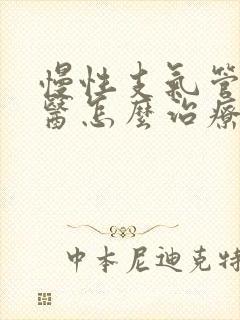 慢性支氣管
醫怎麼治療
中本尼迪克特